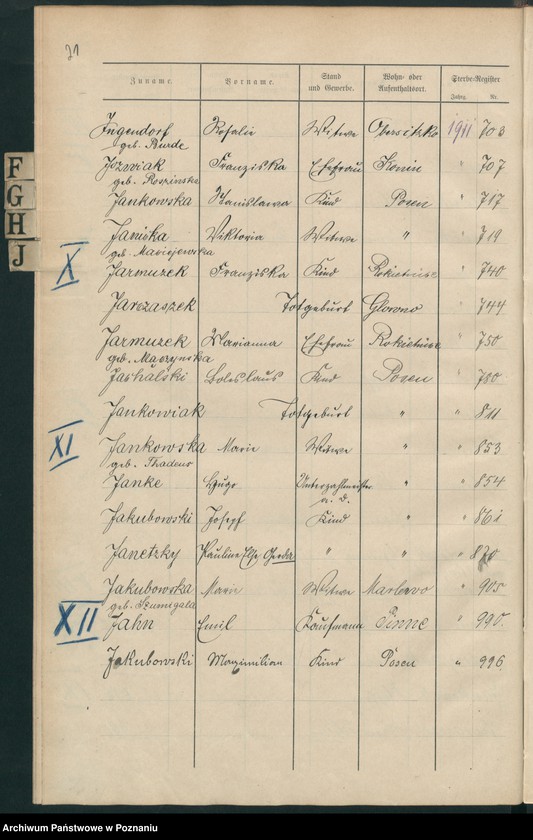 21
Zuname. Vorname. Stand und Gewerbe. Wohn- oder Aufenthaltsort. Sterbe-Register
Jahrg. Nr.
Ingendorf Rosalie Witwe Obersitzko 1911 703
geb. Burde
Jozwiak Franziska Ehefrau Konin " 707
geb. Roszinska
Jankowska Stanislawa Kind Posen " 717
Janiska Wiktoria Witwe " " 719
geb. Maciejewska
X
Jarmuzek Franziska Kind Rokietnice " 740
Jarczaszek Totgeburt Glowno " 744
Jarmuzek Marianna Ehefrau Rokietnice " 750
geb. Maczynska
Jashalski Boleslaus Kind Posen " 780
Jankowiak Totgeburt " " 811
XI
Jankowska Marie Witwe " " 853
geb. Thadeus
Janke Hugo Unterzahlmeister " " 854
a. D.
Jakubowski Josef Kind " " 861
Janetzky Pauline Else Gerda " " " 870
Jakubowska Marie Witwe " 905
geb. Szumigala
XII
Jahn Emil Kaufmann Pinne " 990.
Jakubowski Maximilian Kind Posen " 996.
F
G
H
J
Archiwum Państwowe w Poznaniu